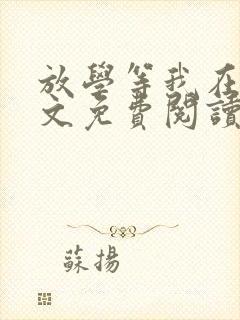 放學等我在
文免費閱讀
蘇揚